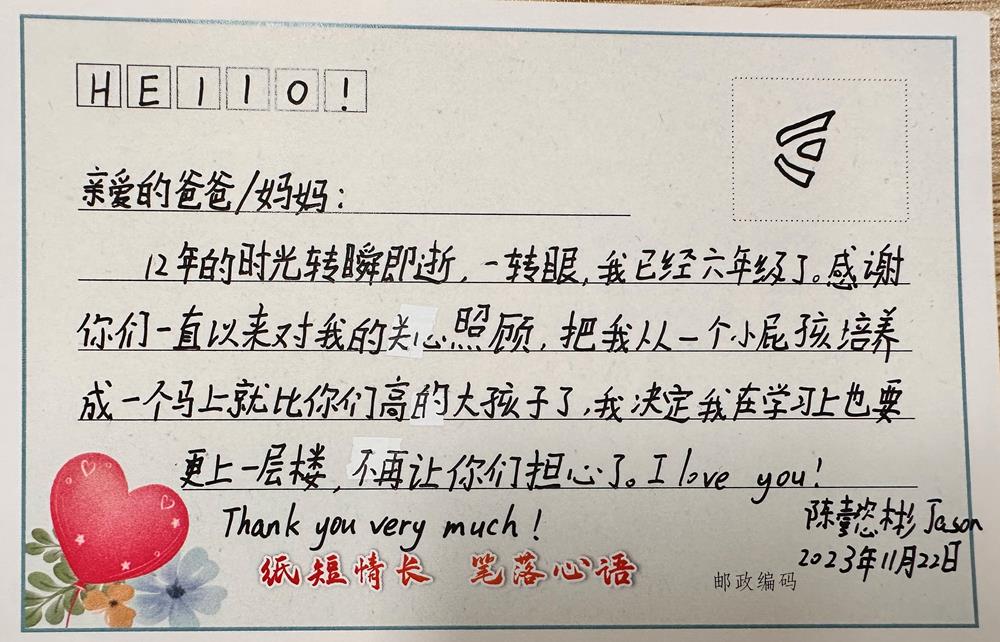 HEllO!
亲爱的爸爸/妈妈:
12年的时光转瞬即逝,一转眼,我已经六年级了。感谢
你们一直以来对我的关心照顾,把我从一个小屁孩培养
成一个马上就比你们高的大孩子了,我决定我在学习上也要
更上一层楼,不再让你们担心了。I love you!
Thank you very much!
陈懿彬 Jason
2023年11月22日
纸短情长 笔落心语
邮政编码